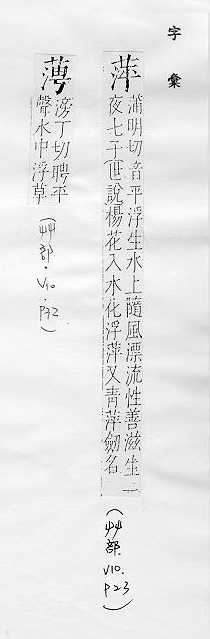 字彙
萍
蒲明切音平浮生水上隨風漂流性善滋生一
夜七子世說楊花入水化浮萍又青萍劒名
(艸部.V10.P23)
滂丁切聘平
聲水中浮草
(艸部.V10.P32)